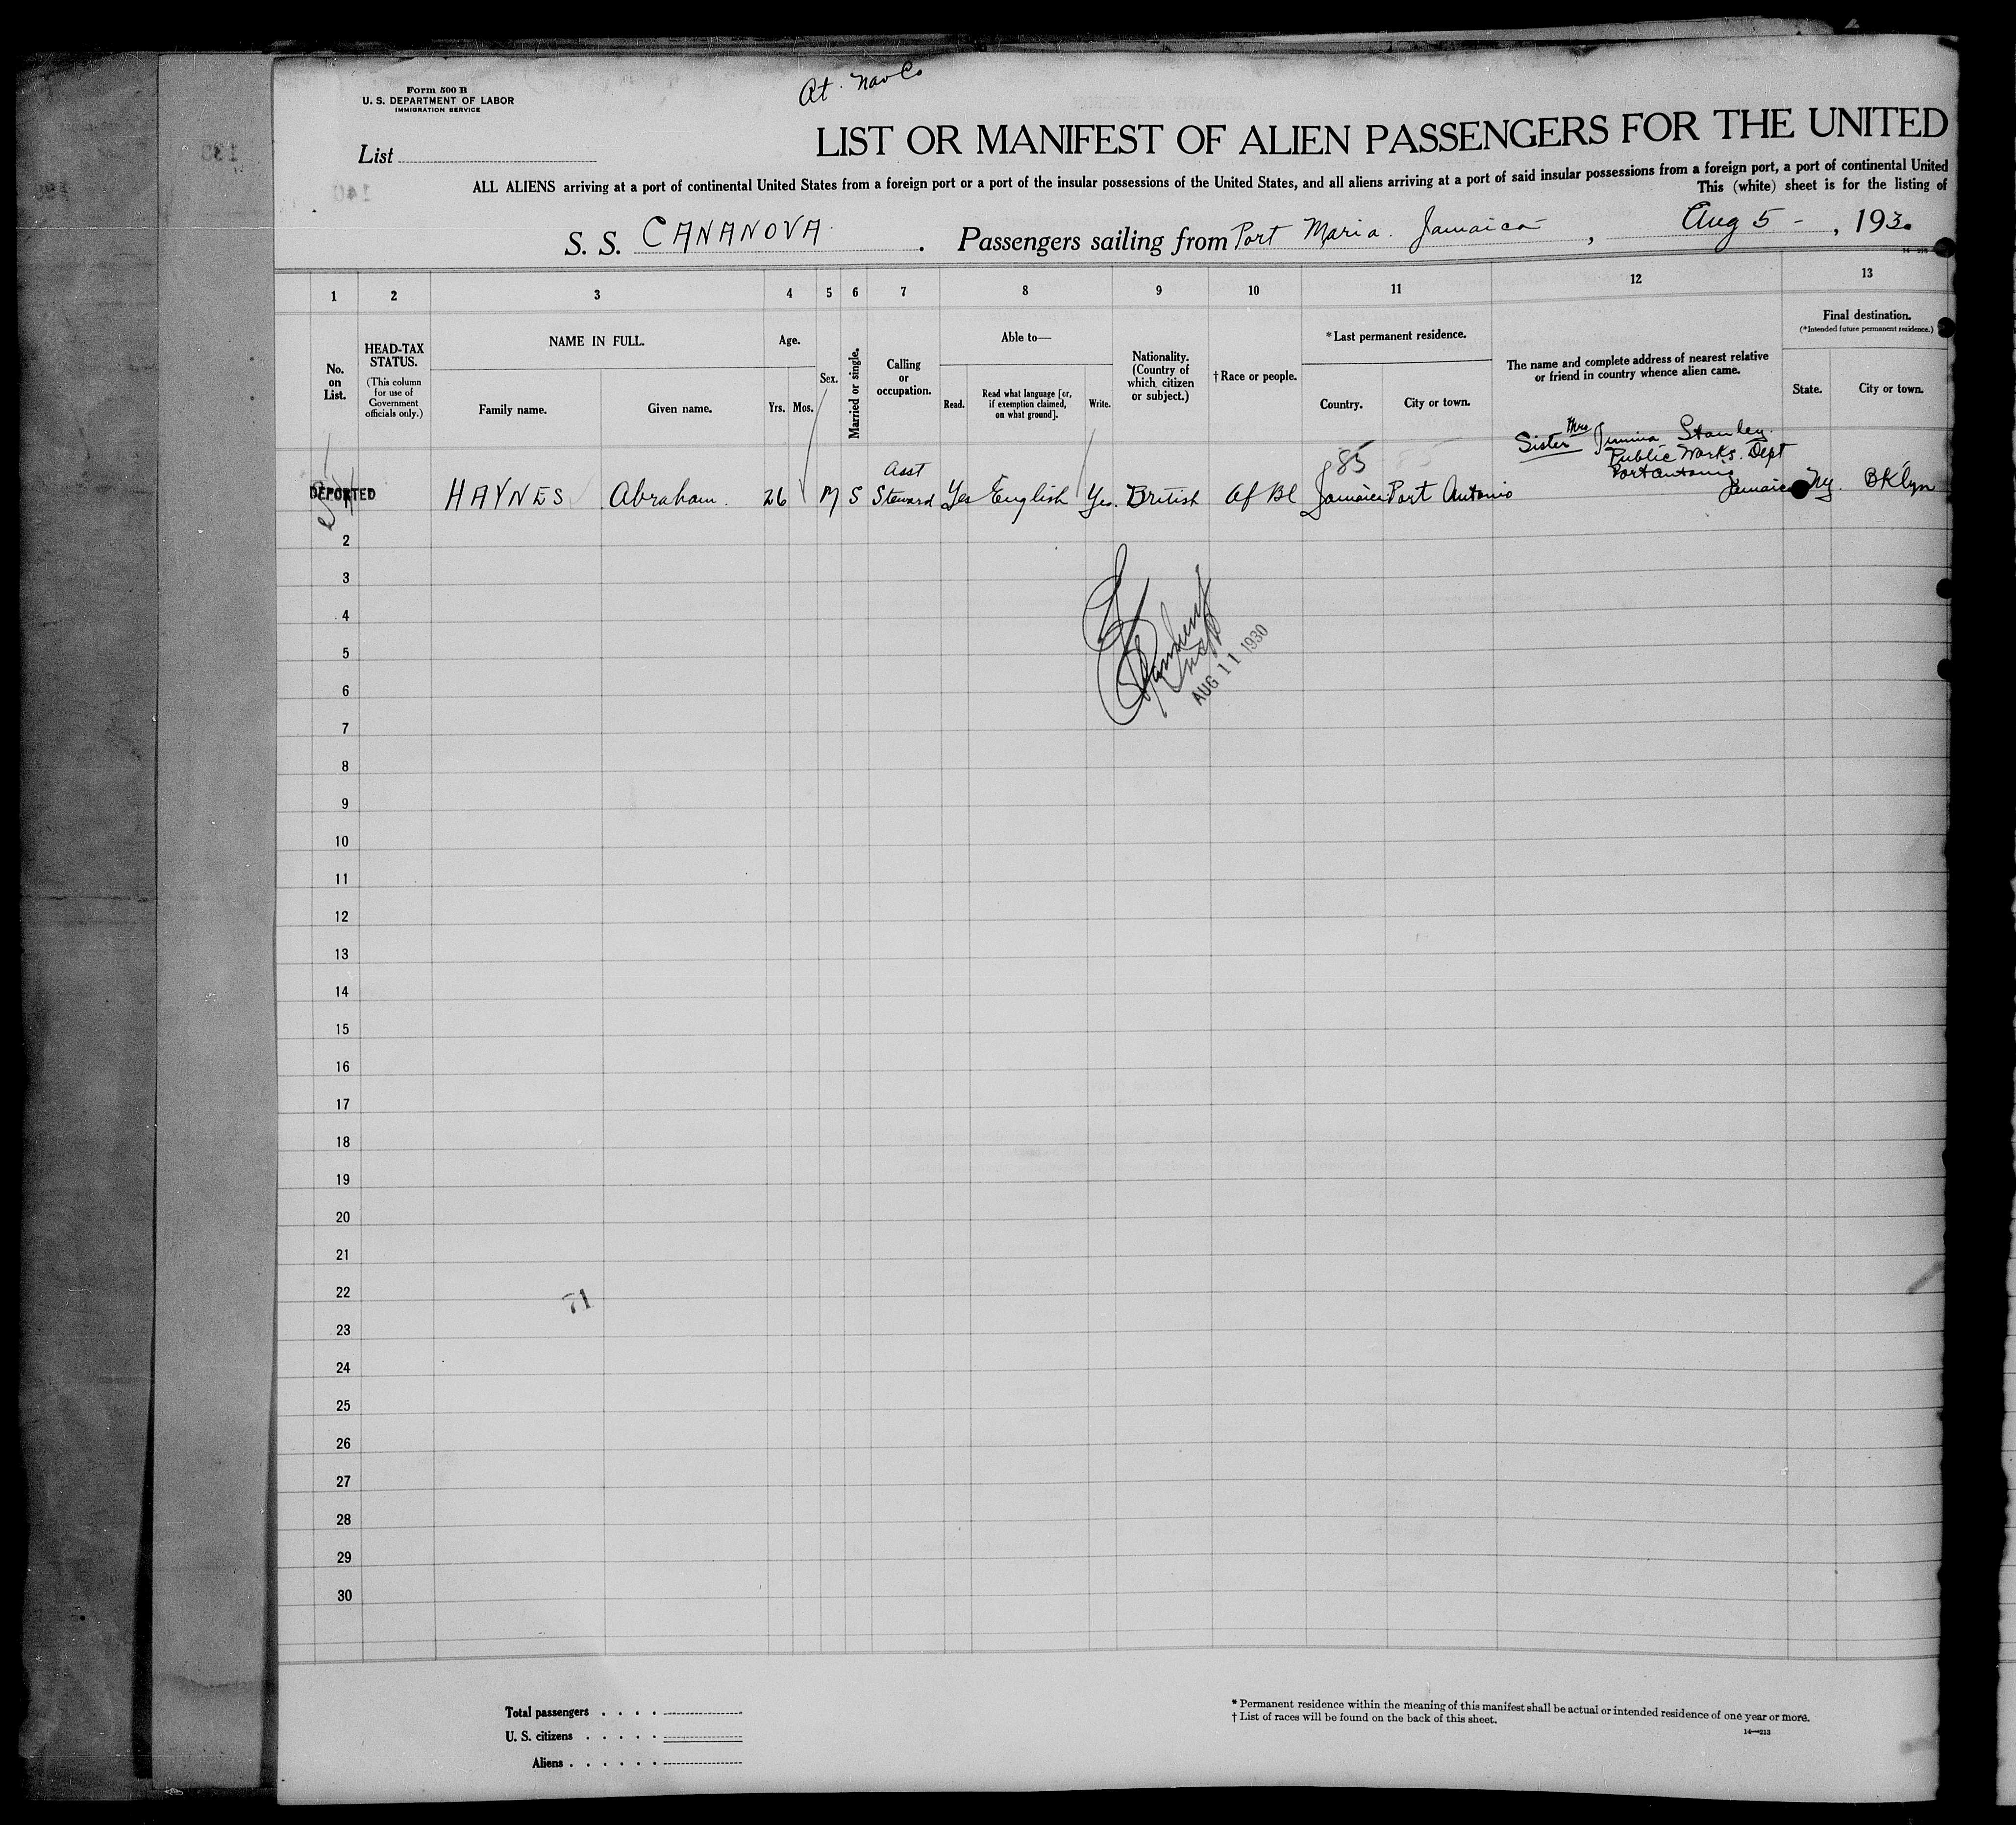 At. Nav Co
Form 500 B
U. S. DEPARTMENT OF LABOR
IMMIGRATION SERVICE
List
LIST OR MANIFEST OF ALIEN PASSENGERS FOR THE UNITED
ALL ALIENS arriving at a port of continental United States from a foreign port or a port of the insular possessions of the United States, and all aliens arriving at a port of said insular possessions from a foreign port, a port of continental United
This (white) sheet is for the listing of
S. S. CANANOVA. Passengers sailing from Port Maria. Jamaica, Aug 5 -, 1930
14—213
1 2 3 4 5 6 7 8 9 10 11 12 13
No. on List.
HEAD-TAX STATUS.
(This column for use of Government officials only.)
NAME IN FULL.
Family name. Given name.
Age.
Yrs. Mos.
Sex.
Married or single.
Calling or occupation.
Able to—
Read. Read what language [or, if exemption claimed, on what ground]. Write.
Nationality. (Country of which citizen or subject.)
† Race or people.
* Last permanent residence.
Country. City or town.
The name and complete address of nearest relative or friend in country whence alien came.
Final destination.
(*Intended future permanent residence.)
State. City or town.
DEPORTED HAYNES Abraham. 26 M S Asst Steward Yes English Yes. British Af Bl Jamaica Port Antonio
85
Sister Mrs Stanley.
Public Works. Dept
Port Antonio
Jamaica
Ny. BKlyn
2
3
4
5
6
7
8
9
10
11
12
13
14
15
16
17
18
19
20
21
22
23
24
25
26
27
28
29
30
AUG 11 1930
71
Total passengers
U. S. citizens
Aliens
* Permanent residence within the meaning of this manifest shall be actual or intended residence of one year or more.
† List of races will be found on the back of this sheet.
14—213